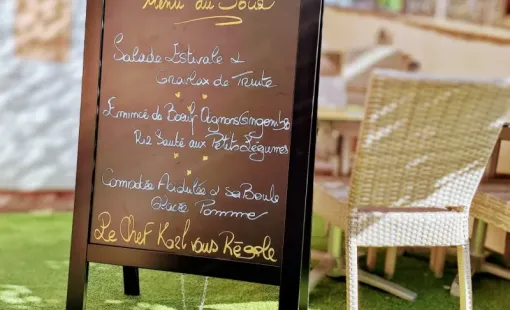 Menu du Jour
Salade Estivale &
Gravlax de Truite
Emincé de Boeuf Oignons gingembre
Riz Sauté aux Petits Légumes
Acidulée & sa Boule
Glacée Pomme
Le Chef Karl vous Régale